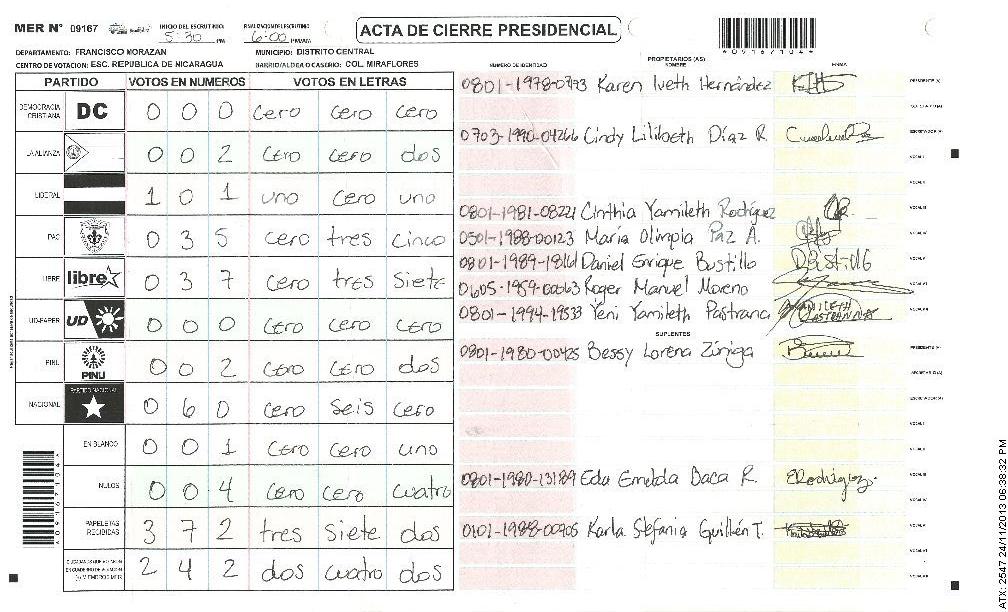 MER N° 09167 INICIO DEL ESCRUTINIO: 5:30 PM FINALIZACION DEL ESCRUTINIO: 6:00 PM/AM ACTA DE CIERRE PRESIDENCIAL
DEPARTAMENTO: FRANCISCO MORAZAN MUNICIPIO: DISTRITO CENTRAL
CENTRO DE VOTACION: ESC. REPUBLICA DE NICARAGUA BARRIO/ALDEA O CASERIO: COL. MIRAFLORES
PARTIDO VOTOS EN NUMEROS VOTOS EN LETRAS
DEMOCRACIA CRISTIANA DC 0 0 0 cero cero cero
LA ALIANZA 0 0 2 cero cero dos
LIBERAL 1 0 1 uno cero uno
PAC 0 3 5 cero tres cinco
LIBRE libre 0 3 7 cero tres siete
UD-FAPER UD 0 0 0 cero cero cero
PINU PINU 0 0 2 cero cero dos
NACIONAL PARTIDO NACIONAL 0 6 0 cero seis cero
EN BLANCO 0 0 1 cero cero uno
NULOS 0 0 4 cero cero cuatro
PAPELETAS RECIBIDAS 3 7 2 tres siete dos
2 4 2 dos cuatro dos
PROPIETARIOS (AS)
NUMERO DE IDENTIDAD NOMBRE FIRMA
0801-1978-0773 Karen Iveth Hernández PRESIDENTE (A)
0703-1990-04266 Cindy Lilibeth Díaz R ESCRUTADOR (A)
0801-1981-08221 Cinthia Yamileth Rodríguez
0501-1988-00123 María Olimpia Paz A.
0801-1989-18161 Daniel Enrique Bustillo
1605-1959-00063 Roger Manuel Moreno
0801-1994-19533 Yeni Yamileth Pastrana
SUPLENTES
0801-1980-00425 Bessy Lorena Zúniga PRESIDENTE (A)
SECRETARIO (A)
ESCRUTADOR (A)
0801-1980-13189 Eda Emelda Baca R. ERodríguez.
0101-1988-00905 Karla Stefania Guillén T.
*09167104*
ATX: 2547 24/11/2013 06:38:32 PM